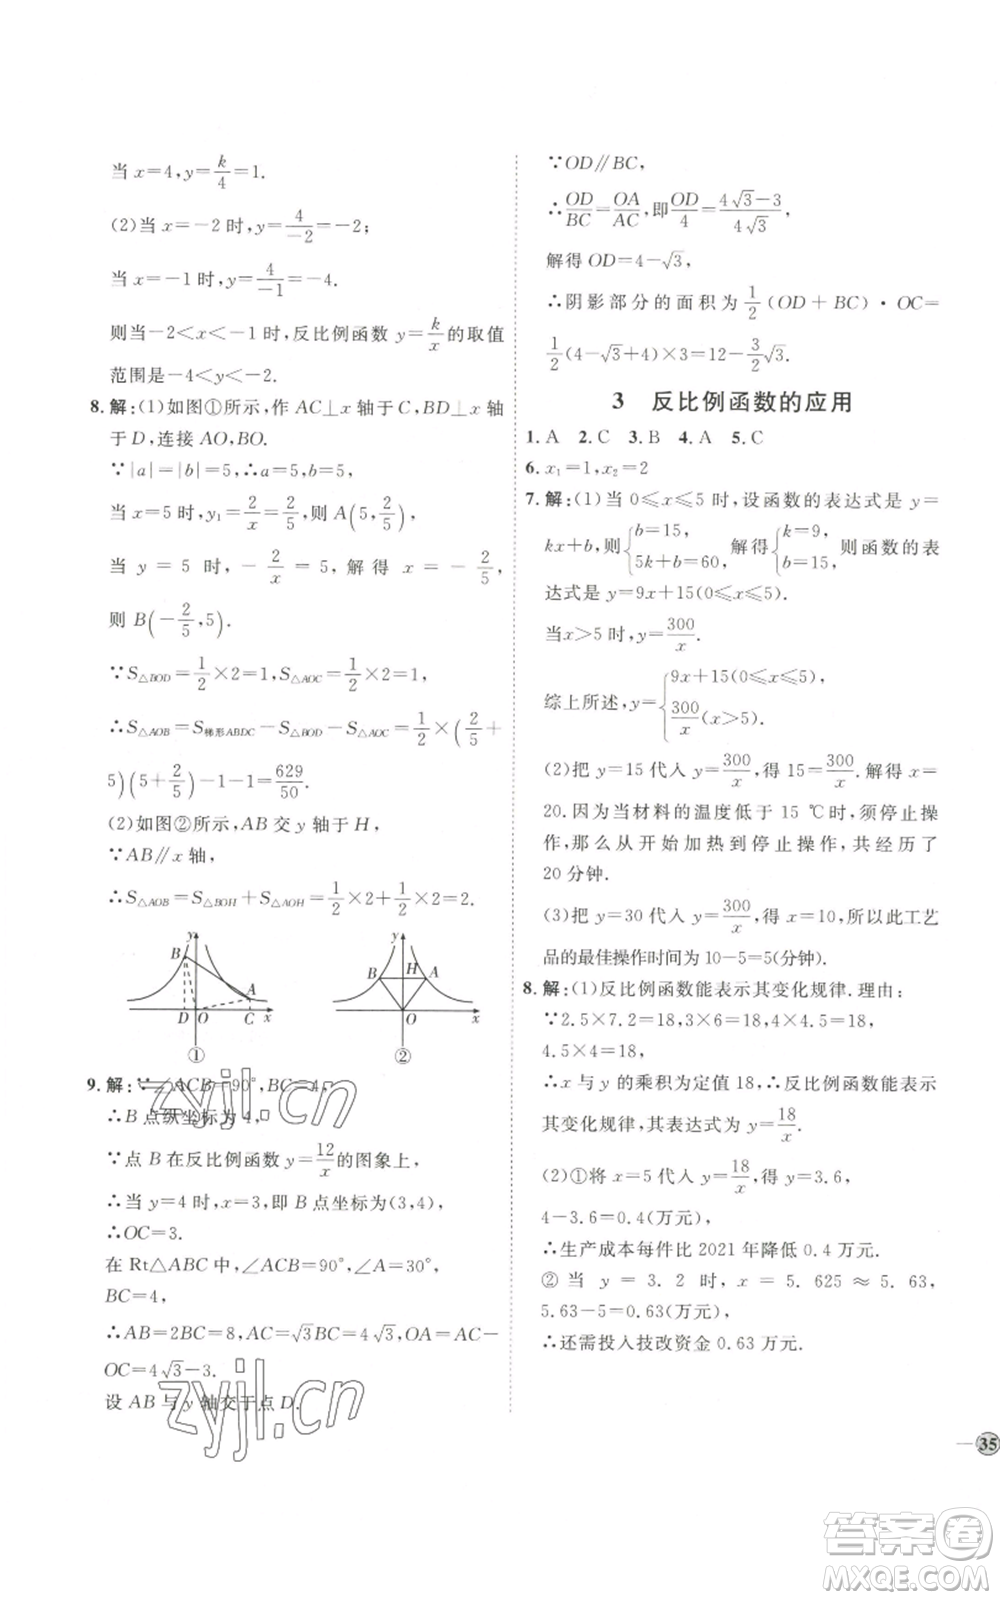 当 x=4,y=k/4=1.
(2)当 x=-2 时,y=4/-2=-2;
当 x=-1 时,y=4/-1=-4.
则当-2<x<-1 时,反比例函数 y=k/x 的取值
范围是-4<y<-2.
8. 解:(1)如图①所示,作 AC⊥x 轴于 C,BD⊥x 轴
于 D,连接 AO,BO.
∵|a|=|b|=5,∴a=5,b=5,
当 x=5 时,y₁=2/x=2/5,则 A(5,2/5),
当 y=5 时,-2/x=5,解得 x=-2/5,
则 B(-2/5,5).
∵S△BOD=1/2×2=1,S△AOC=1/2×2=1,
∴S△AOB=S梯形ABDC-S△BOD-S△AOC=1/2×(2/5+
5)(5+2/5)-1-1=629/50.
(2)如图②所示,AB 交 y 轴于 H,
∵AB∥x 轴,
∴S△AOB=S△BOH+S△AOH=1/2×2+1/2×2=2.
y B A D O C x ①
y B H A O x ②
9. 解:∵∠ACB=90°,BC=4,
∴B 点纵坐标为 4,
∵点 B 在反比例函数 y=12/x 的图象上,
∴当 y=4 时,x=3,即 B 点坐标为(3,4),
∴OC=3.
在 Rt△ABC 中,∠ACB=90°,∠A=30°,
BC=4,
∴AB=2BC=8,AC=√3BC=4√3,OA=AC-
OC=4√3-3.
设 AB 与 y 轴交于点 D.
∵OD∥BC,
∴OD/BC=OA/AC,即OD/4=(4√3-3)/(4√3),
解得 OD=4-√3,
∴阴影部分的面积为1/2(OD+BC)·OC=
1/2(4-√3+4)×3=12-3/2√3.
3 反比例函数的应用
1. A 2. C 3. B 4. A 5. C
6. x₁=1,x₂=2
7. 解:(1)当 0≤x≤5 时,设函数的表达式是 y=
kx+b,则{b=15,5k+b=60, 解得{k=9,b=15, 则函数的表
达式是 y=9x+15(0≤x≤5).
当x>5 时,y=300/x.
综上所述,y={9x+15(0≤x≤5),300/x(x>5).
(2)把 y=15 代入 y=300/x,得 15=300/x.解得 x=
20.因为当材料的温度低于 15 ℃时,须停止操
作,那么从开始加热到停止操作,共经历了
20 分钟.
(3)把 y=30 代入 y=300/x,得 x=10,所以此工艺
品的最佳操作时间为 10-5=5(分钟).
8. 解:(1)反比例函数能表示其变化规律.理由:
∵2.5×7.2=18,3×6=18,4×4.5=18,
4.5×4=18,
∴x 与 y 的乘积为定值 18,∴反比例函数能表示
其变化规律,其表达式为 y=18/x.
(2)①将 x=5 代入 y=18/x,得 y=3.6,
4-3.6=0.4(万元),
∴生产成本每件比 2021 年降低 0.4 万元.
② 当 y=3.2 时,x=5.625≈5.63,
5.63-5=0.63(万元),
∴还需投入技改资金 0.63 万元.
35
zyjl.cn
zyjl.cn
答案卷
MXQE.COM